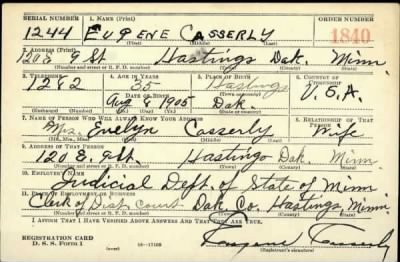 SERIAL NUMBER 1. NAME (Print) ORDER NUMBER
1244 EUGENE CASSERLY 1840
(First) (Middle) (Last)
2. ADDRESS (Print)
120 E 9 St Hastings Dak. Minn
(Number and street or R. F. D. number) (Town) (County) (State)
3. TELEPHONE 4. AGE IN YEARS 5. PLACE OF BIRTH 6. COUNTRY OF CITIZENSHIP
1282 35 Hastings U.S.A.
DATE OF BIRTH (Town or county)
Aug 6 1905 Dak.
(Exchange) (Number) (Mo.) (Day) (Yr.) (State or country)
7. NAME OF PERSON WHO WILL ALWAYS KNOW YOUR ADDRESS 8. RELATIONSHIP OF THAT PERSON
Mrs. Evelyn Casserly Wife
(Mr., Mrs., Miss) (First) (Middle) (Last)
9. ADDRESS OF THAT PERSON
120 E. 9 St. Hastings Dak. Minn
(Number and street or R. F. D. number) (Town) (County) (State)
10. EMPLOYER'S NAME
Judicial Dept. of State of Minn
11. PLACE OF EMPLOYMENT OR BUSINESS
Clerk of Dist court Dak. Co. Hastings, Minn.
(Number and street or R. F. D. number) (Town) (County) (State)
I AFFIRM THAT I HAVE VERIFIED ABOVE ANSWERS AND THAT THEY ARE TRUE.
REGISTRATION CARD
D. S. S. FORM 1 Eugene Casserly
(Registrant's signature)